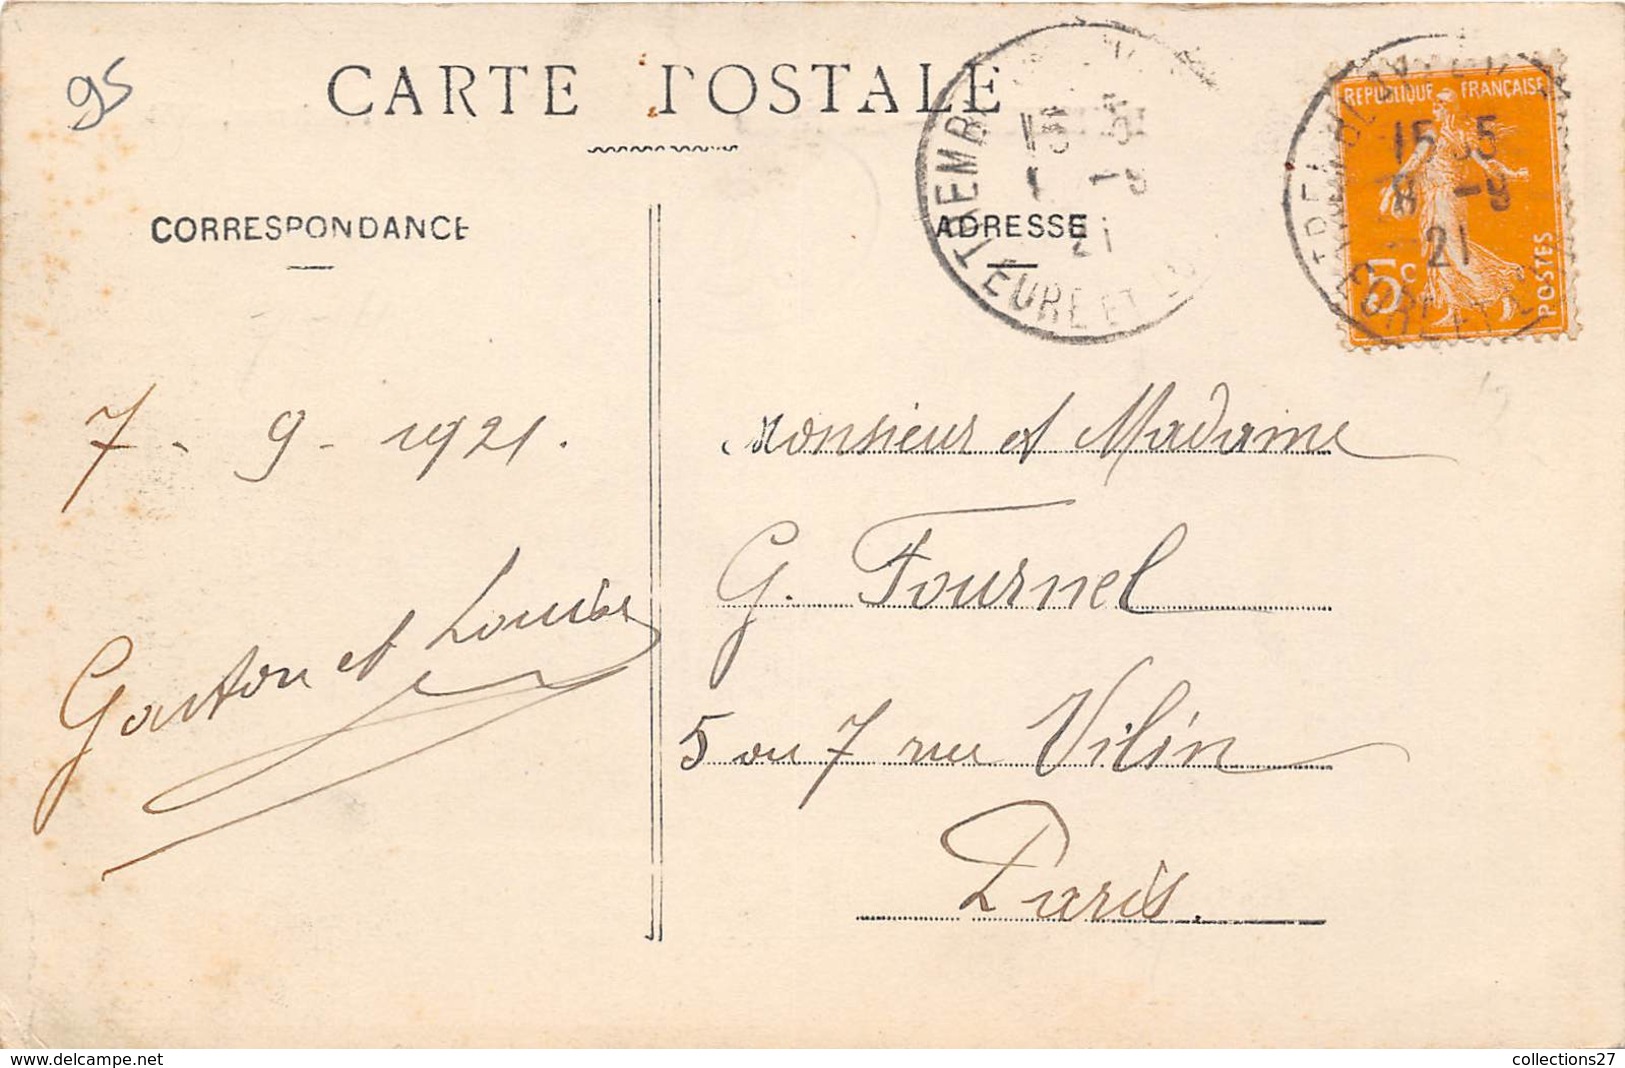 95
CARTE POSTALE
CORRESPONDANCE
ADRESSE
TREMB
EURE ET L
15 35
21
REPUBLIQUE FRANÇAISE
5c
POSTES
15 35
8 -9
21
7 - 9 - 1921.
Gaston et Louise
Monsieur et Madame
G. Fournel
5 ou 7 rue Vilin
Paris.
www.delcampe.net
collections27